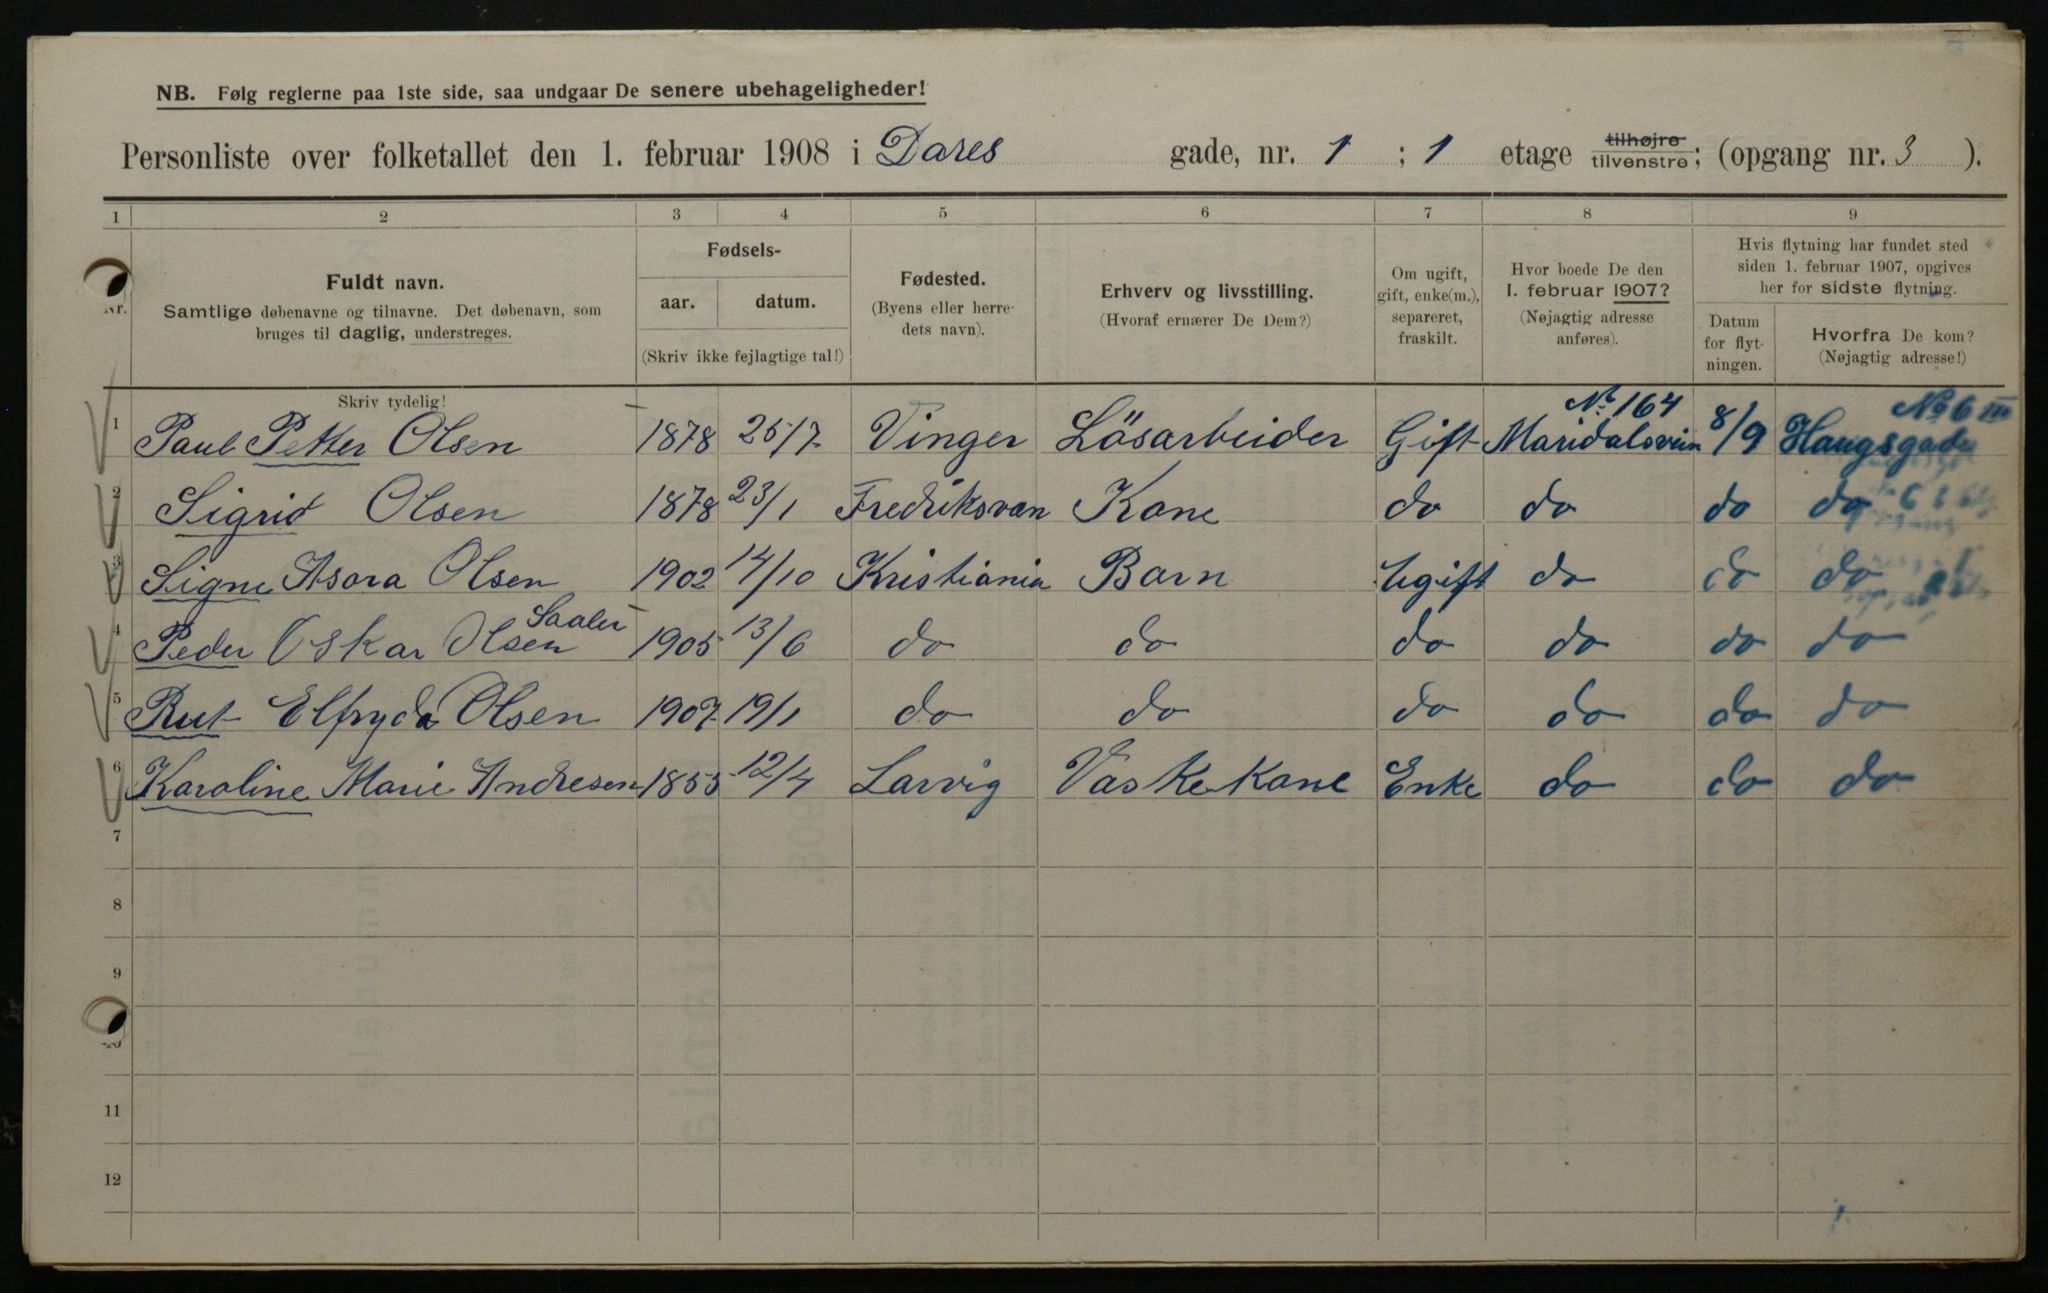 NB. Følg reglerne paa 1ste side, saa undgaar De senere ubehageligheder!
Personliste over folketallet den 1. februar 1908 i Dares gade, nr. 1 ; 1 etage tilhøjre tilvenstre; (opgang nr. 3 ).
1 2 3 4 5 6 7 8 9
Nr.
Fuldt navn.
Samtlige døbenavne og tilnavne. Det døbenavn, som
bruges til daglig, understreges.
Skriv tydelig!
Fødsels-
aar. datum.
(Skriv ikke fejlagtige tal!)
Fødested.
(Byens eller herre-
dets navn).
Erhverv og livsstilling.
(Hvoraf ernærer De Dem?)
Om ugift,
gift, enke(m.),
separeret,
fraskilt.
Hvor boede De den
1. februar 1907?
(Nøjagtig adresse
anføres).
Hvis flytning har fundet sted
siden 1. februar 1907, opgives
her for sidste flytning.
Datum
for flyt-
ningen.
Hvorfra De kom?
(Nøjagtig adresse!)
No 164 No 6 III
1 Paul Petter Olsen 1878 25/7 Vinger Lösarbeider Gift Maridalsvein 8/9 Haugsgade
2 Sigrid Olsen 1878 23/1 Fredriksvæn Kone do do do do
3 Signe Asora Olsen 1902 14/10 Kristiania Barn Ugift do do do
Saaler
4 Peder Oskar Olsen 1905 13/6 do do do do do do
5 Rut Elfryda Olsen 1907 19/1 do do do do do do
6 Karoline Marie Andresen 1855 12/4 Larvig Vaskekone Enke do do do
7
8
9
10
11
12